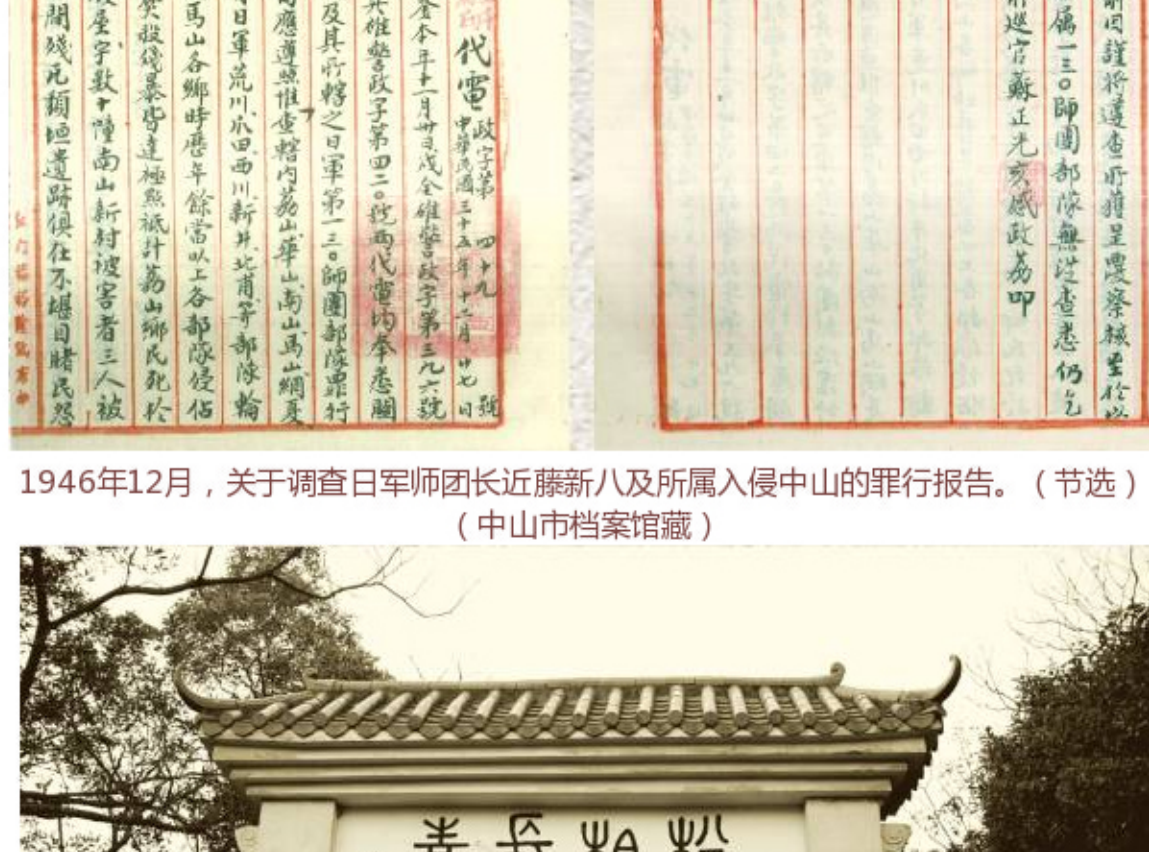 代電 政字第四十九號
中華民國三十五年十二月廿七日
本年十一月卅日戌全雄警政字第三九六號
雄警政子第四二〇號酉代電均奉悉關
及其所轄之日軍第一三〇師團部隊罪行
應遵照惟查轄内荔山華山南山馬山網夏
日軍荒川爪田西川新井北甫等部隊輪
馬山各鄉時歷年餘當以上各部隊侵佔
焚殺殘暴皆達極點祇計荔山鄉民死於
屋宇數十幢南山新村被害者三人被
間殘瓦頹垣遺跡俱在不堪目睹民怨
前因謹將遵查所獲呈覆察核至於
屬一三〇師團部隊無從查悉仍乞
巡官蘇正光亥感政荔叩
1946年12月，关于调查日军师团长近藤新八及所属入侵中山的罪行报告。（节选）
（中山市档案馆藏）
松柏長青